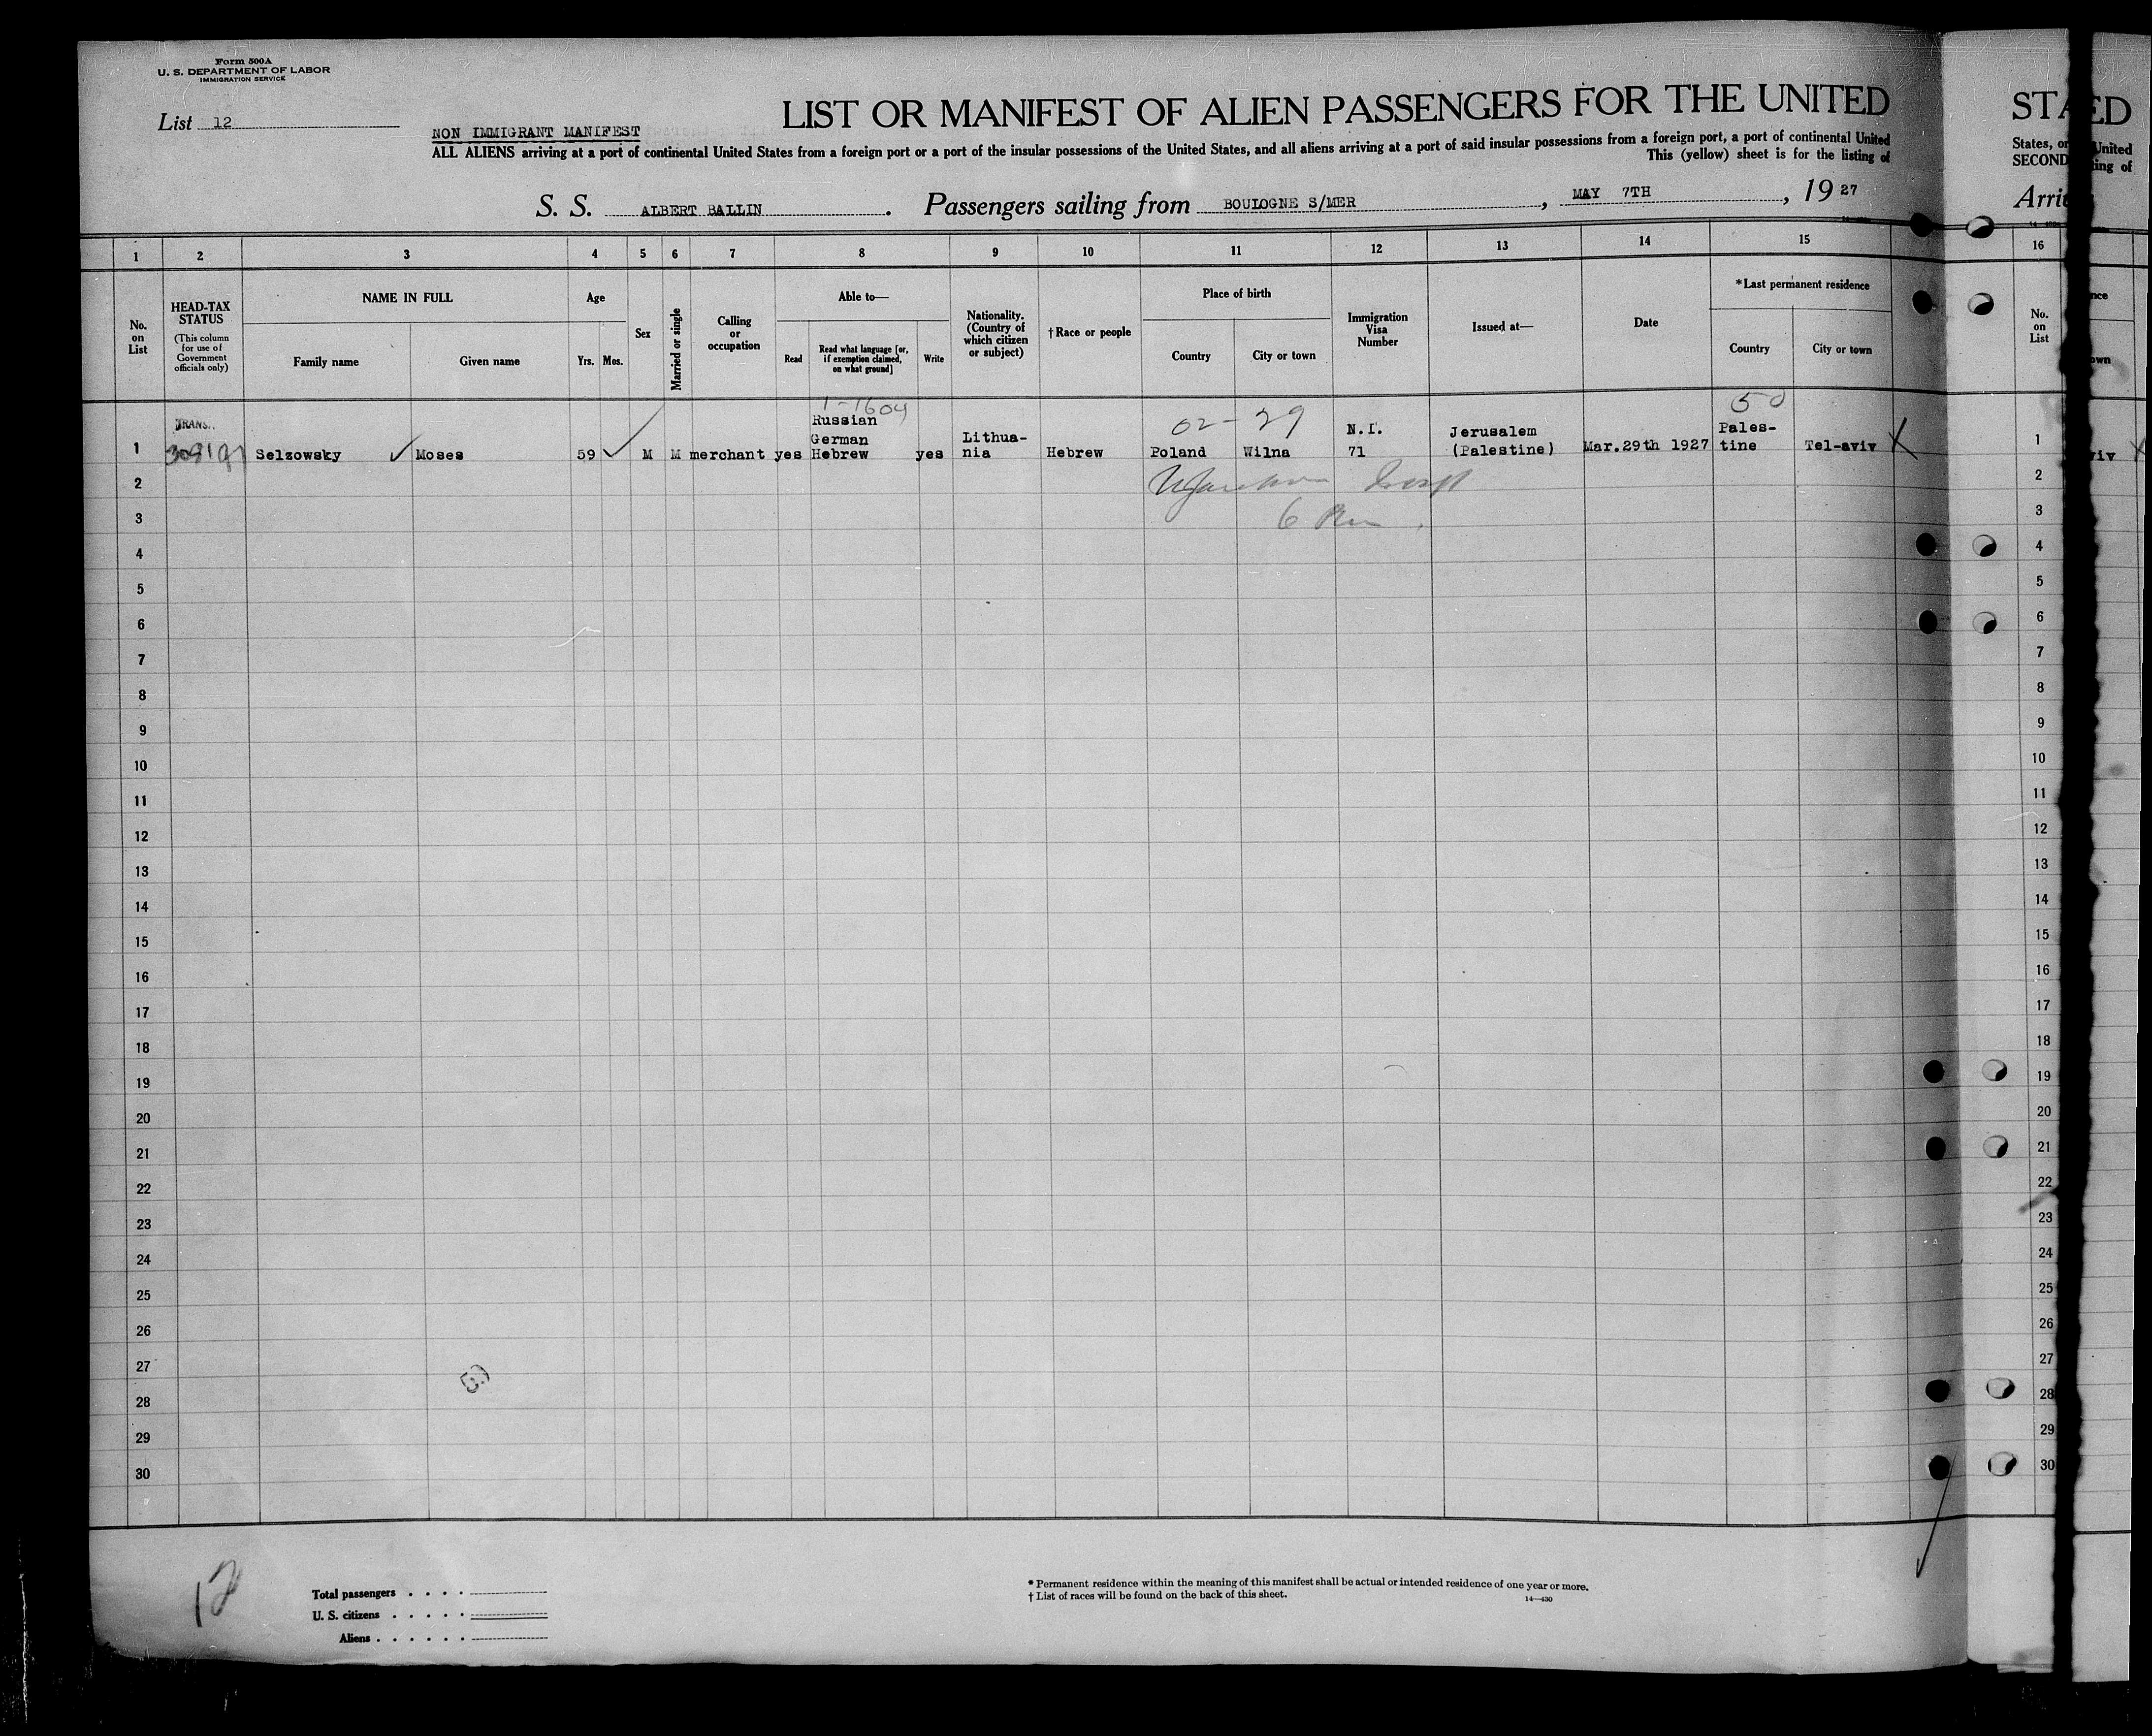 Form 500A
U. S. DEPARTMENT OF LABOR
IMMIGRATION SERVICE
List 12
NON IMMIGRANT MANIFEST
LIST OR MANIFEST OF ALIEN PASSENGERS FOR THE UNITED
ALL ALIENS arriving at a port of continental United States from a foreign port or a port of the insular possessions of the United States, and all aliens arriving at a port of said insular possessions from a foreign port, a port of continental United
This (yellow) sheet is for the listing of
S. S. ALBERT BALLIN. Passengers sailing from BOULOGNE S/MER, MAY 7TH, 1927
STA ED
States, or United
SECOND ing of
Arri
1 2 3 4 5 6 7 8 9 10 11 12 13 14 15 16
No. on List
HEAD-TAX STATUS
(This column for use of Government officials only)
NAME IN FULL
Family name
Given name
Age
Yrs. Mos.
Sex
Married or single
Calling or occupation
Able to—
Read
Read what language [or, if exemption claimed, on what ground]
Write
Nationality. (Country of which citizen or subject)
†Race or people
Place of birth
Country
City or town
Immigration Visa Number
Issued at—
Date
*Last permanent residence
Country
City or town
No. on List
nce
own
1-1604
02-29
50
TRANS.
1 Selzowsky Moses 59 M M merchant yes Russian German Hebrew yes Lithua-nia Hebrew Poland Wilna N.I. 71 Jerusalem (Palestine) Mar.29th 1927 Pales-tine Tel-aviv X 1 viv
2 2
3 6 3
4 4
5 5
6 6
7 7
8 8
9 9
10 10
11 11
12 12
13 13
14 14
15 15
16 16
17 17
18 18
19 19
20 20
21 21
22 22
23 23
24 24
25 25
26 26
27 27
28 28
29 29
30 30
12
Total passengers . . . .
U. S. citizens . . . . .
Aliens . . . . . .
* Permanent residence within the meaning of this manifest shall be actual or intended residence of one year or more.
† List of races will be found on the back of this sheet.
14—430